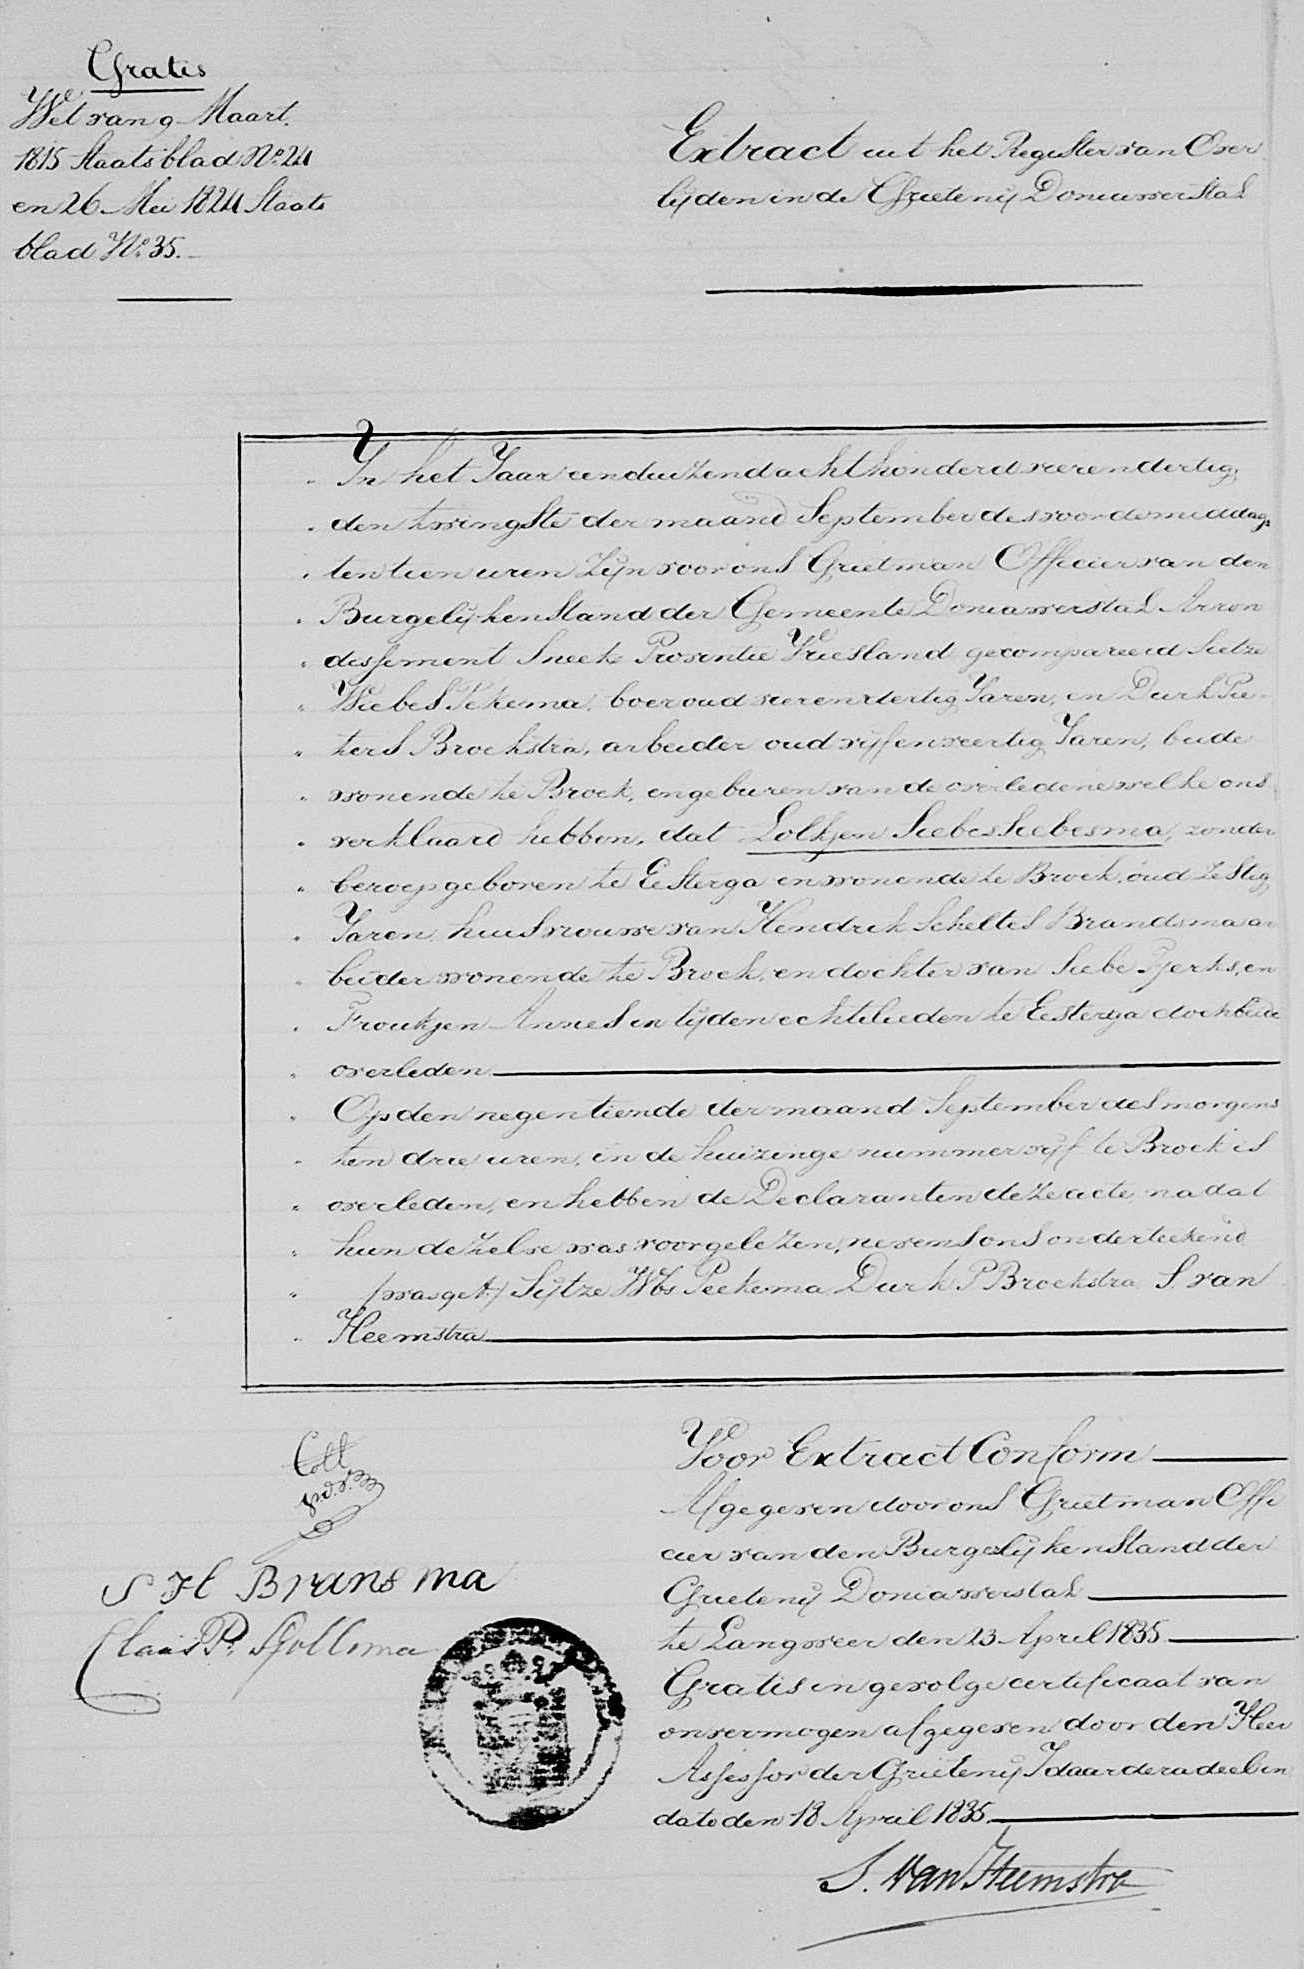 Gratis
Wet van 9 Maart.
1815 Staatsblad No. 24
en 26 Mei 1824 Staats
blad No. 35.
Extract uit het Register van Over
lijden in de Grietenij Doniawerstal
In het Jaar eenduizend achthonderd vierendertig,
den twingste der maand September des voordemiddags
ten tien uren zijn voor ons Grietman Officier van den
Burgelijken Stand der Gemeente Doniawerstal Arron
dissement Sneek Provintie Vriesland gecompareerd Sietze
Wiebes Pekema, boer oud vierendertig Jaren, en Durk Pie
ters Broekstra, arbeider oud vijfenveertig Jaren, beide
wonende te Broek, en geburen van de overledene welke ons
verklaard hebben, dat Lolkjen Siebes Siebesma, zonder
beroep geboren te Eesterga en wonende te Broek, oud zestig
Jaren, huisvrouwe van Hendrik Scheltes Brandsma ar
beider wonende te Broek, en dochter van Siebe Tjerks, en
Froukjen Annes in lijden echtelieden te Eesterga doch beide
overleden
Op den negentiende der maand September des morgens
ten drie uren, in de huizinge nummer vijf te Broek is
overleden, en hebben de Declaranten deze acte, na dat
hun dezelve was voorgelezen, nevens ons onderteekend
(was get) Sijtze Wbs Peekema Durk P Broekstra S. van
Heemstra
Coll
S H Bransma
Claas P. Sjollema
Voor Extract Conform
Afgegeven door ons Grietman Offi
cier van den Burgelijken Stand der
Grietenij Doniawerstal
te Langweer den 23 April 1835
Gratis in gevolge certificaat van
onvermogen afgegeven door den Heer
Assessor der Grietenij Idaarderadeel in
dato den 18 April 1835.
S. van Heemstra